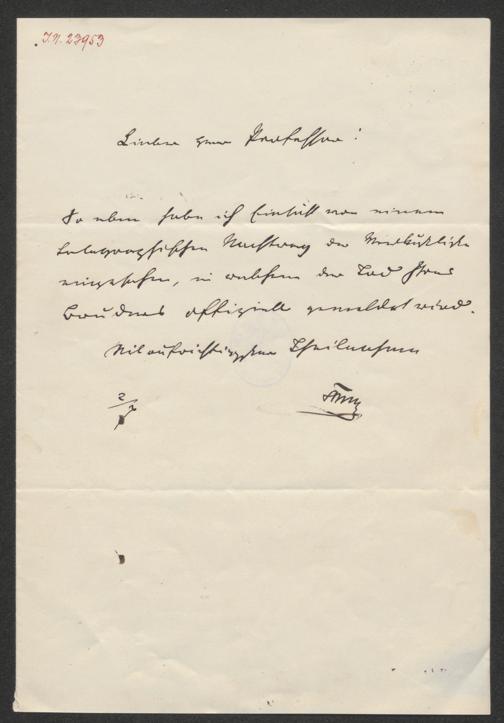 I.N. 23953
Lieber Herr Professor!
So eben habe ich Einsicht von einem
telegraphischen Nachtrag der Verlustliste
eingesehen, in welchem der Tod Ihres
Bruders offiziell gemeldet wird.
Mit aufrichtigster Theilnahme
2/7